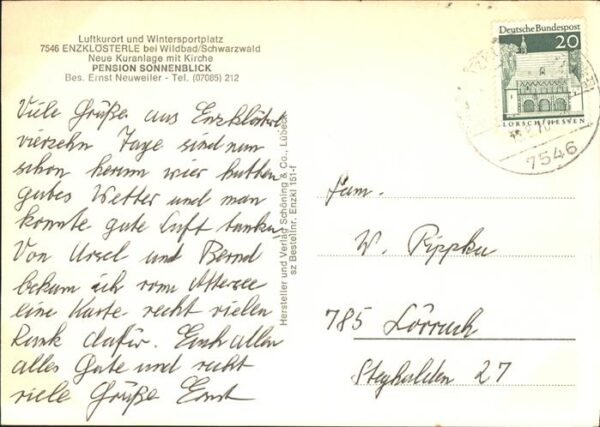 Luftkurort und Wintersportplatz
7546 ENZKLÖSTERLE bei Wildbad/Schwarzwald
Neue Kuranlage mit Kirche
PENSION SONNENBLICK
Bes. Ernst Neuweiler - Tel. (07085) 212
Viele Grüße aus Enzklösterl
vierzehn Tage sind nun
schon herum wier hatten
gutes Wetter und man
konnte gute Luft tanken
Von Ursel und Bernd
bekam ich vom Attersee
eine Karte recht vielen
Dank dafür. Euch allen
alles Gute und recht
viele Grüße Ernst
Hersteller und Verlag Schöning & Co., Lübeck
sz Bestellnr. Enzkl 151-f
Deutsche Bundespost
20
LORSCH/HESSEN
7546
Fam.
W. Rippku
785 Lörrach
Steghalden 27